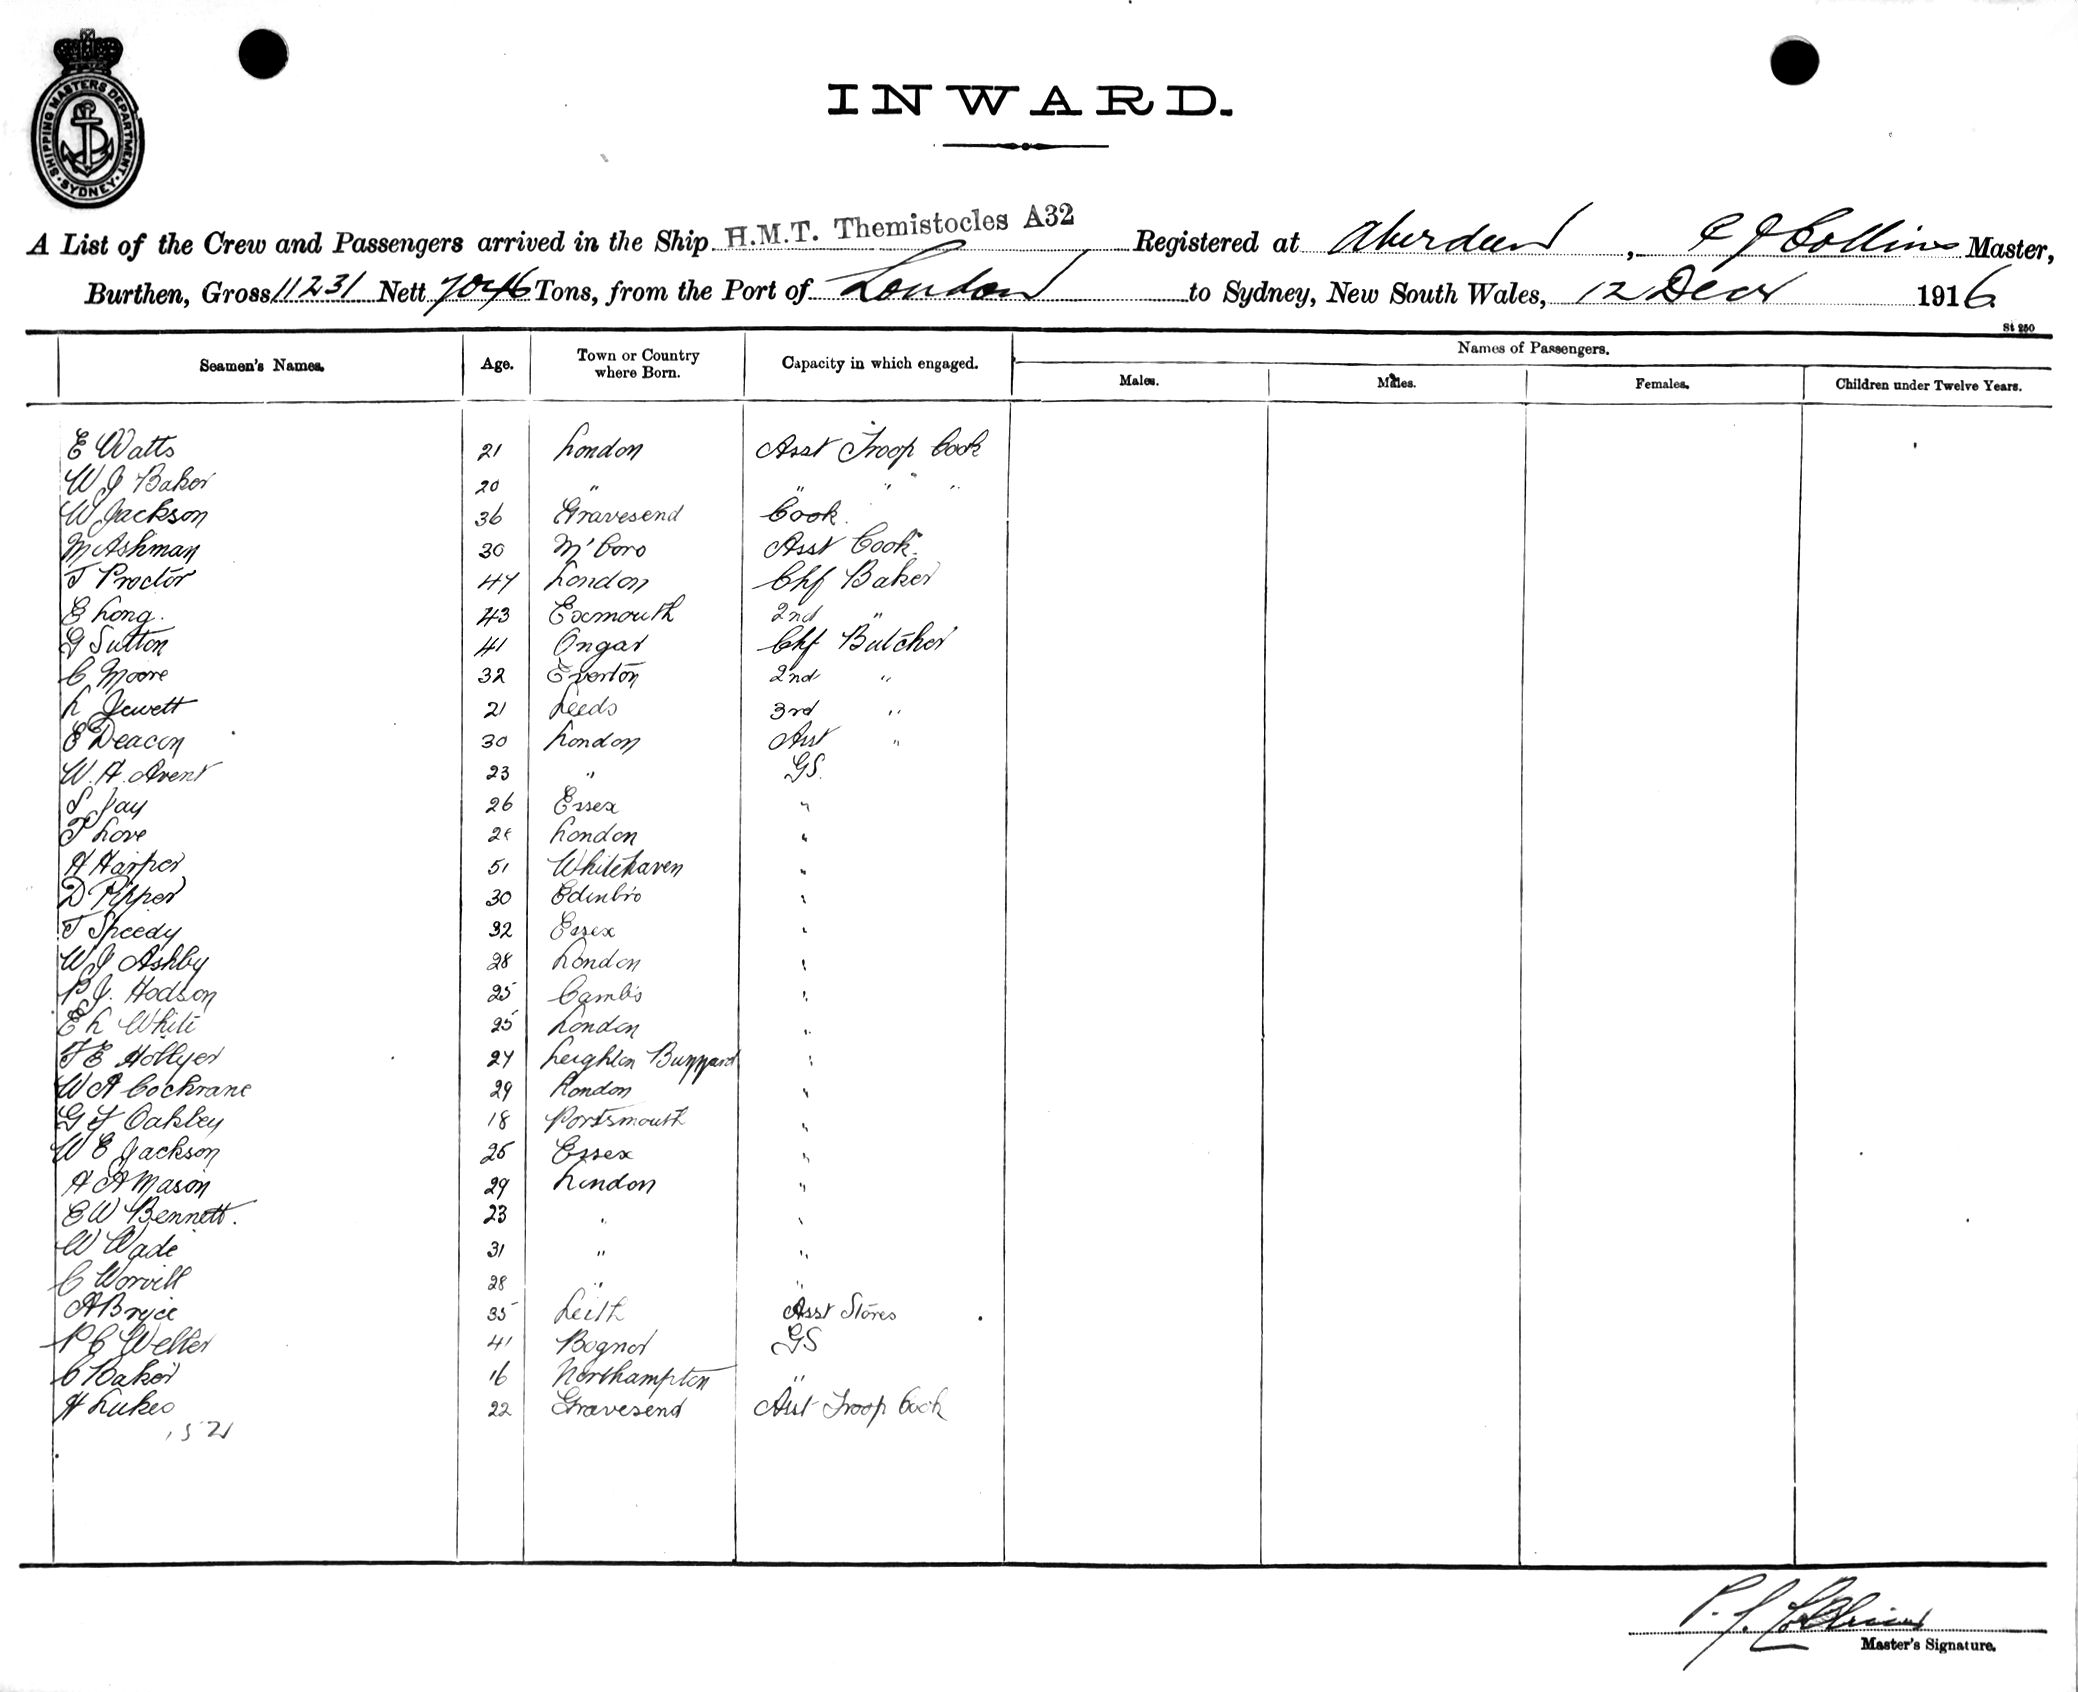 SHIPPING MASTERS DEPARTMENT
SYDNEY
INWARD.
A List of the Crew and Passengers arrived in the Ship H.M.T. Themistocles A32 Registered at Aberdeen, Collins Master,
Burthen, Gross 11231 Nett 7046 Tons, from the Port of London to Sydney, New South Wales, 12 Decr 1916
St 250
Seamen's Names. Age. Town or Country where Born. Capacity in which engaged. Names of Passengers.
Males. Males. Females. Children under Twelve Years.
E Watts 21 London Asst Troop Cook
W J Baker 20 " " " "
W Jackson 36 Gravesend Cook
M Ashman 30 M'boro Asst Cook
T Proctor 47 London Chf Baker
E Long. 43 Exmouth 2nd "
G Sutton 41 Ongar Chf Butcher
C Moore 32 Everton 2nd "
L Jewett 21 Leeds 3rd "
E Deacon 30 London Asst "
W. A. Avent 23 " GS.
S Jay 26 Essex "
T Love London "
H Harper 51 Whitehaven "
D Pipper 30 Edinbro "
T Speedy 32 Essex "
W J Ashby 28 London "
P J. Hodson 25 Cambs "
E L White 25 London "
F E Hollyer 27 Leighton Buzzard "
W A Cochrane 29 London "
G F Oakley 18 Portsmouth "
W E Jackson 25 Essex "
A A Mason 29 London "
E W Bennett. 23 " "
W Wade 31 " "
C Worvill 28 " "
A Bryce 35 Leith Asst Stores
P C Welter 41 Bognor GS
C Baker 16 Northampton "
H Lukes 22 Gravesend Asst Troop Cook
Master's Signature.